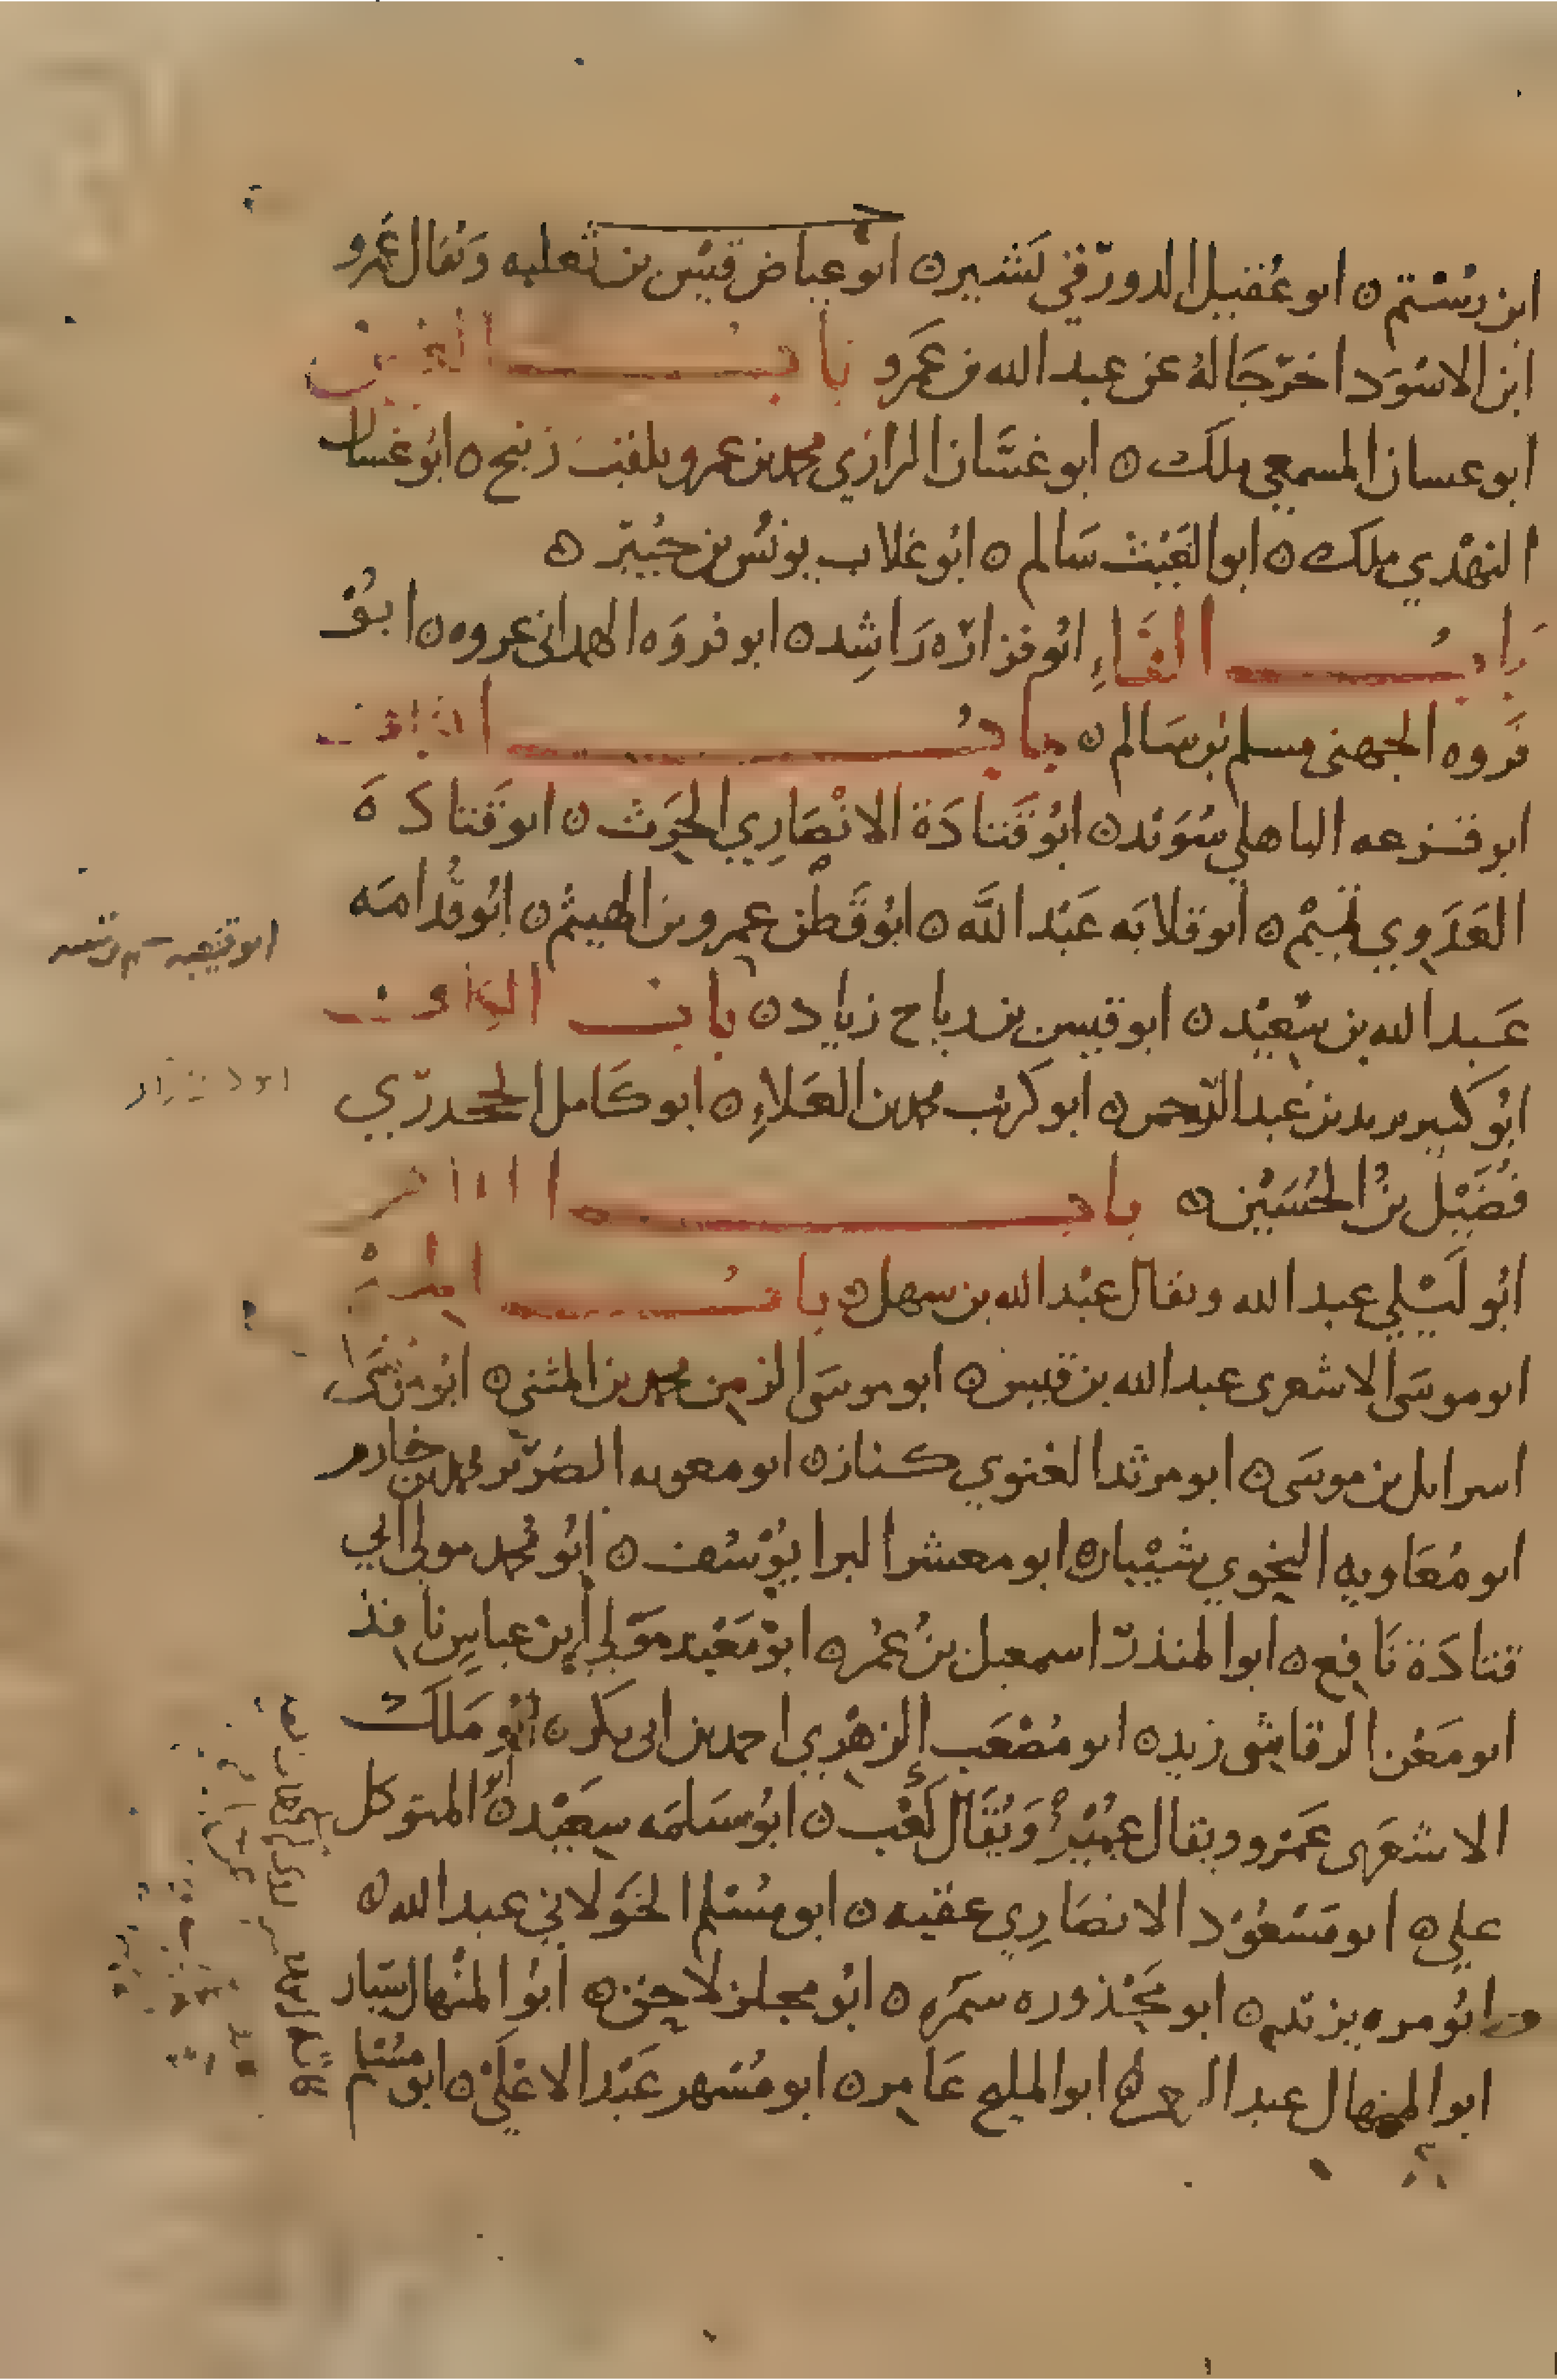 ابن رستم ه ابو عقيل الدورقي بشير ه ابو عياض قيس بن ثعلبه ويقال عمرو
ابن الاسود اخرجا له عن عبد الله بن عمرو باب الغين
ابو غسان المسمعي ملك ه ابو غسان الرازي محمد بن عمرو يلقب زنيج ه ابو غسان
النهدي ملك ه ابو الغيث سالم ه ابو غلاب يونس بن جبير ه
باب الفاء ابو فزارة راشد ه ابو فروة الهمداني عروه ه ابو
فروه الجهني مسلم بن سالم ه باب القاف
ابو قزعه الباهلي سويد ه ابو قتادة الانصاري الحرث ه ابو قتادة
العدوي تميم ه ابو قلابه عبد الله ه ابو قطن عمرو بن الهيثم ه ابو قدامه
عبد الله بن سعيد ه ابو قيس بن رباح زياد ه باب الكاف
ابو كبير يزيد بن عبد الرحمن ه ابو كريب محمد بن العلاء ه ابو كامل الجحدري
فضيل بن الحسين ه باب اللام
ابو ليلى عبد الله ويقال عبد الله بن سهل ه باب الميم
ابو موسى الاشعرى عبد الله بن قيس ه ابو موسى الزمن محمد بن المثنى ه ابو موسى
اسرايل بن موسى ه ابو مرثد الغنوي كناز ه ابو معويه الضرير محمد بن خازم
ابو معاويه النحوي شيبان ه ابو معشر البرا يوسف ه ابو محمد مولى ابي
قتادة نافع ه ابو المنذر اسمعيل بن عمر ه ابو معبد مولى ابن عباس نافذ
ابو معن الرقاشي زيد ه ابو مصعب الزهري احمد بن ابى بكر ه ابو ملك
الاشعرى عمرو ويقال عبيد ويقال كعب ه ابو سلمه سعيد ه ابو المتوكل
علي ه ابو مسعود الانصاري عقبه ه ابو مسلم الخولاني عبد الله ه
ابو مره يزيد ه ابو محذوره سمره ه ابو مجلز لاحق ه ابو المنهال سيار
ابو المنهال عبد الرحمن ه ابو المليح عامر ه ابو مسهر عبد الاعلى ه ابو مسلم